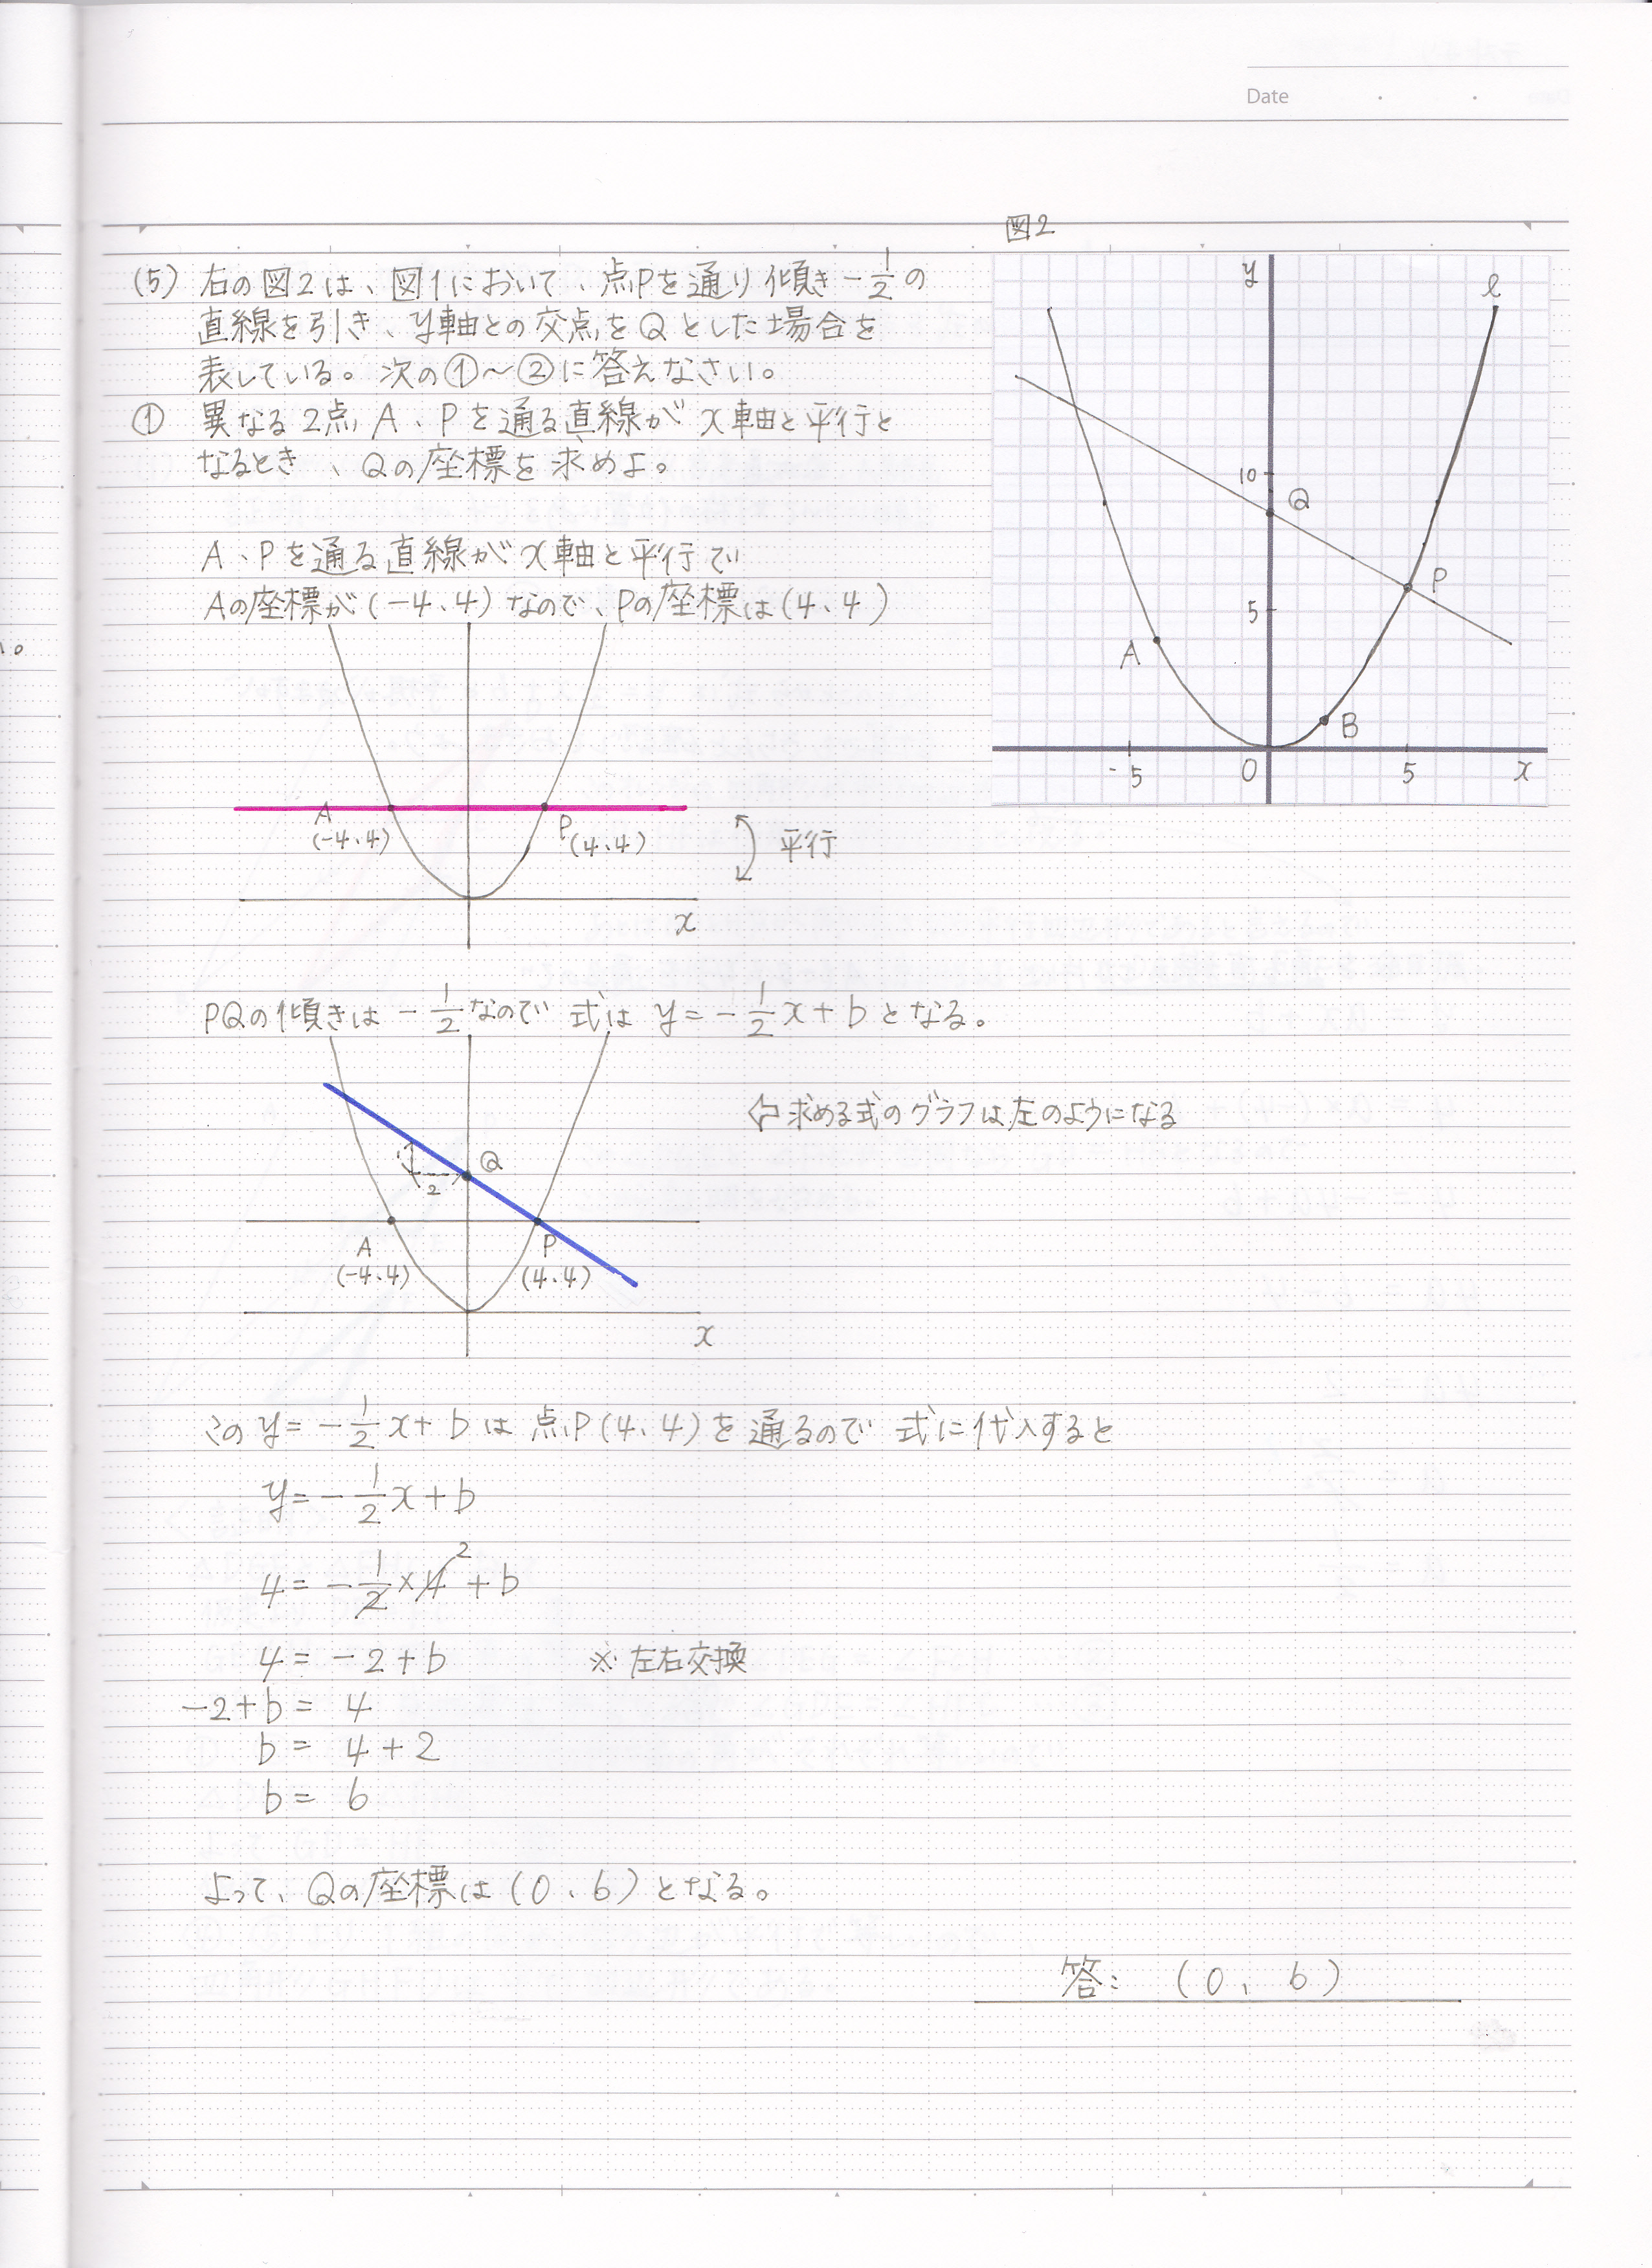 Date
図2
(5) 右の図2は、図1において、点Pを通り傾き-1/2の
直線を引き、y軸との交点をQとした場合を
表している。次の①〜②に答えなさい。
① 異なる2点A、Pを通る直線がx軸と平行と
なるとき、Qの座標を求めよ。
y
l
10
Q
P
5
A
B
-5
0
5
x
A、Pを通る直線がx軸と平行で
Aの座標が(-4、4)なので、Pの座標は(4、4)
A
(-4、4)
P
(4、4)
平行
x
PQの傾きは -1/2なので 式は y=-1/2x+b となる。
⇦求める式のグラフは左のようになる
1
2
Q
A
(-4、4)
P
(4、4)
x
この y=-1/2x+b は 点P(4、4)を通るので 式に代入すると
y=-1/2x+b
2
4=-1/2×4+b
4=-2+b ※左右交換
-2+b=4
b=4+2
b=6
よって、Qの座標は(0、6)となる。
答: (0、6)